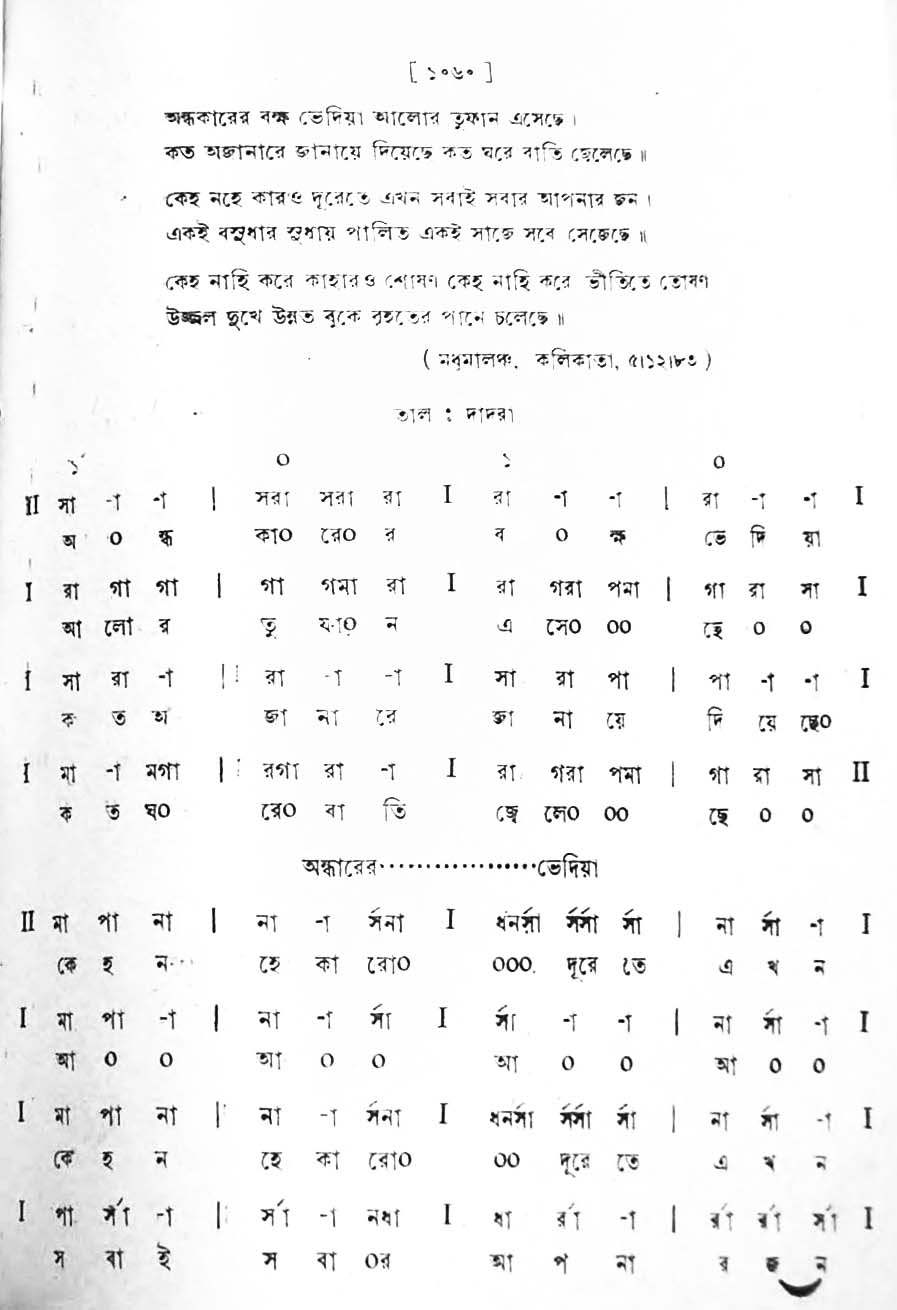 [ ১০৬০ ]
অন্ধকারের বক্ষ ভেদিয়া আলোর তুফান এসেছে ।
কত অজানারে জানায়ে দিয়েছে কত ঘরে বাতি জ্বেলেছে ॥
কেহ নহে কারও দূরেতে এখন সবাই সবার আপনার জন ।
একই বসুধার সুধায় পালিত একই সাজে সবে সেজেছে ॥
কেহ নাহি করে কাহারও শোষণ কেহ নাহি করে ভীতিতে তোষণ
উজ্জ্বল মুখে উন্নত বুকে বৃহতের পানে চলেছে ॥
( মধুমালঞ্চ, কলিকাতা, ৫।১২।৮৩ )
তাল : দাদরা
১ ০ ১ ০
II সা -া -া | সরা সরা রা I রা -া -া | রা -া -া I
অ ০ ন্ধ কা০ রে০ র ব ০ ক্ষ ভে দি য়া
I রা গা গা | গা গমা রা I রা গরা পমা | গা রা সা I
আ লো র তু ফা০ ন এ সে০ ০০ ছে ০ ০
I সা রা -া | রা -া -া I সা রা পা | পা -া -া I
ক ত অ জা না রে জা না য়ে দি য়ে ছে০
I মা -া মগা | রগা রা -া I রা গরা পমা | গা রা সা II
ক ত ঘ০ রে০ বা তি জ্বে লে০ ০০ ছে ০ ০
অন্ধারের··················ভেদিয়া
II মা পা না | না -া র্সনা I ধনর্সা র্সর্সা র্সা | না র্সা -া I
কে হ ন হে কা রো০ ০০০ দূরে তে এ খ ন
I মা পা -া | না -া র্সা I র্সা -া -া | না র্সা -া I
আ ০ ০ আ ০ ০ আ ০ ০ আ ০ ০
I মা পা না | না -া র্সনা I ধনর্সা র্সর্সা র্সা | না র্সা -া I
কে হ ন হে কা রো০ ০০ দূরে তে এ খ ন
I পা র্সা -া | র্সা -া নধা I ধা র্রা -া | র্রা র্রা র্সা I
স বা ই স বা ০র আ প না র জ ন